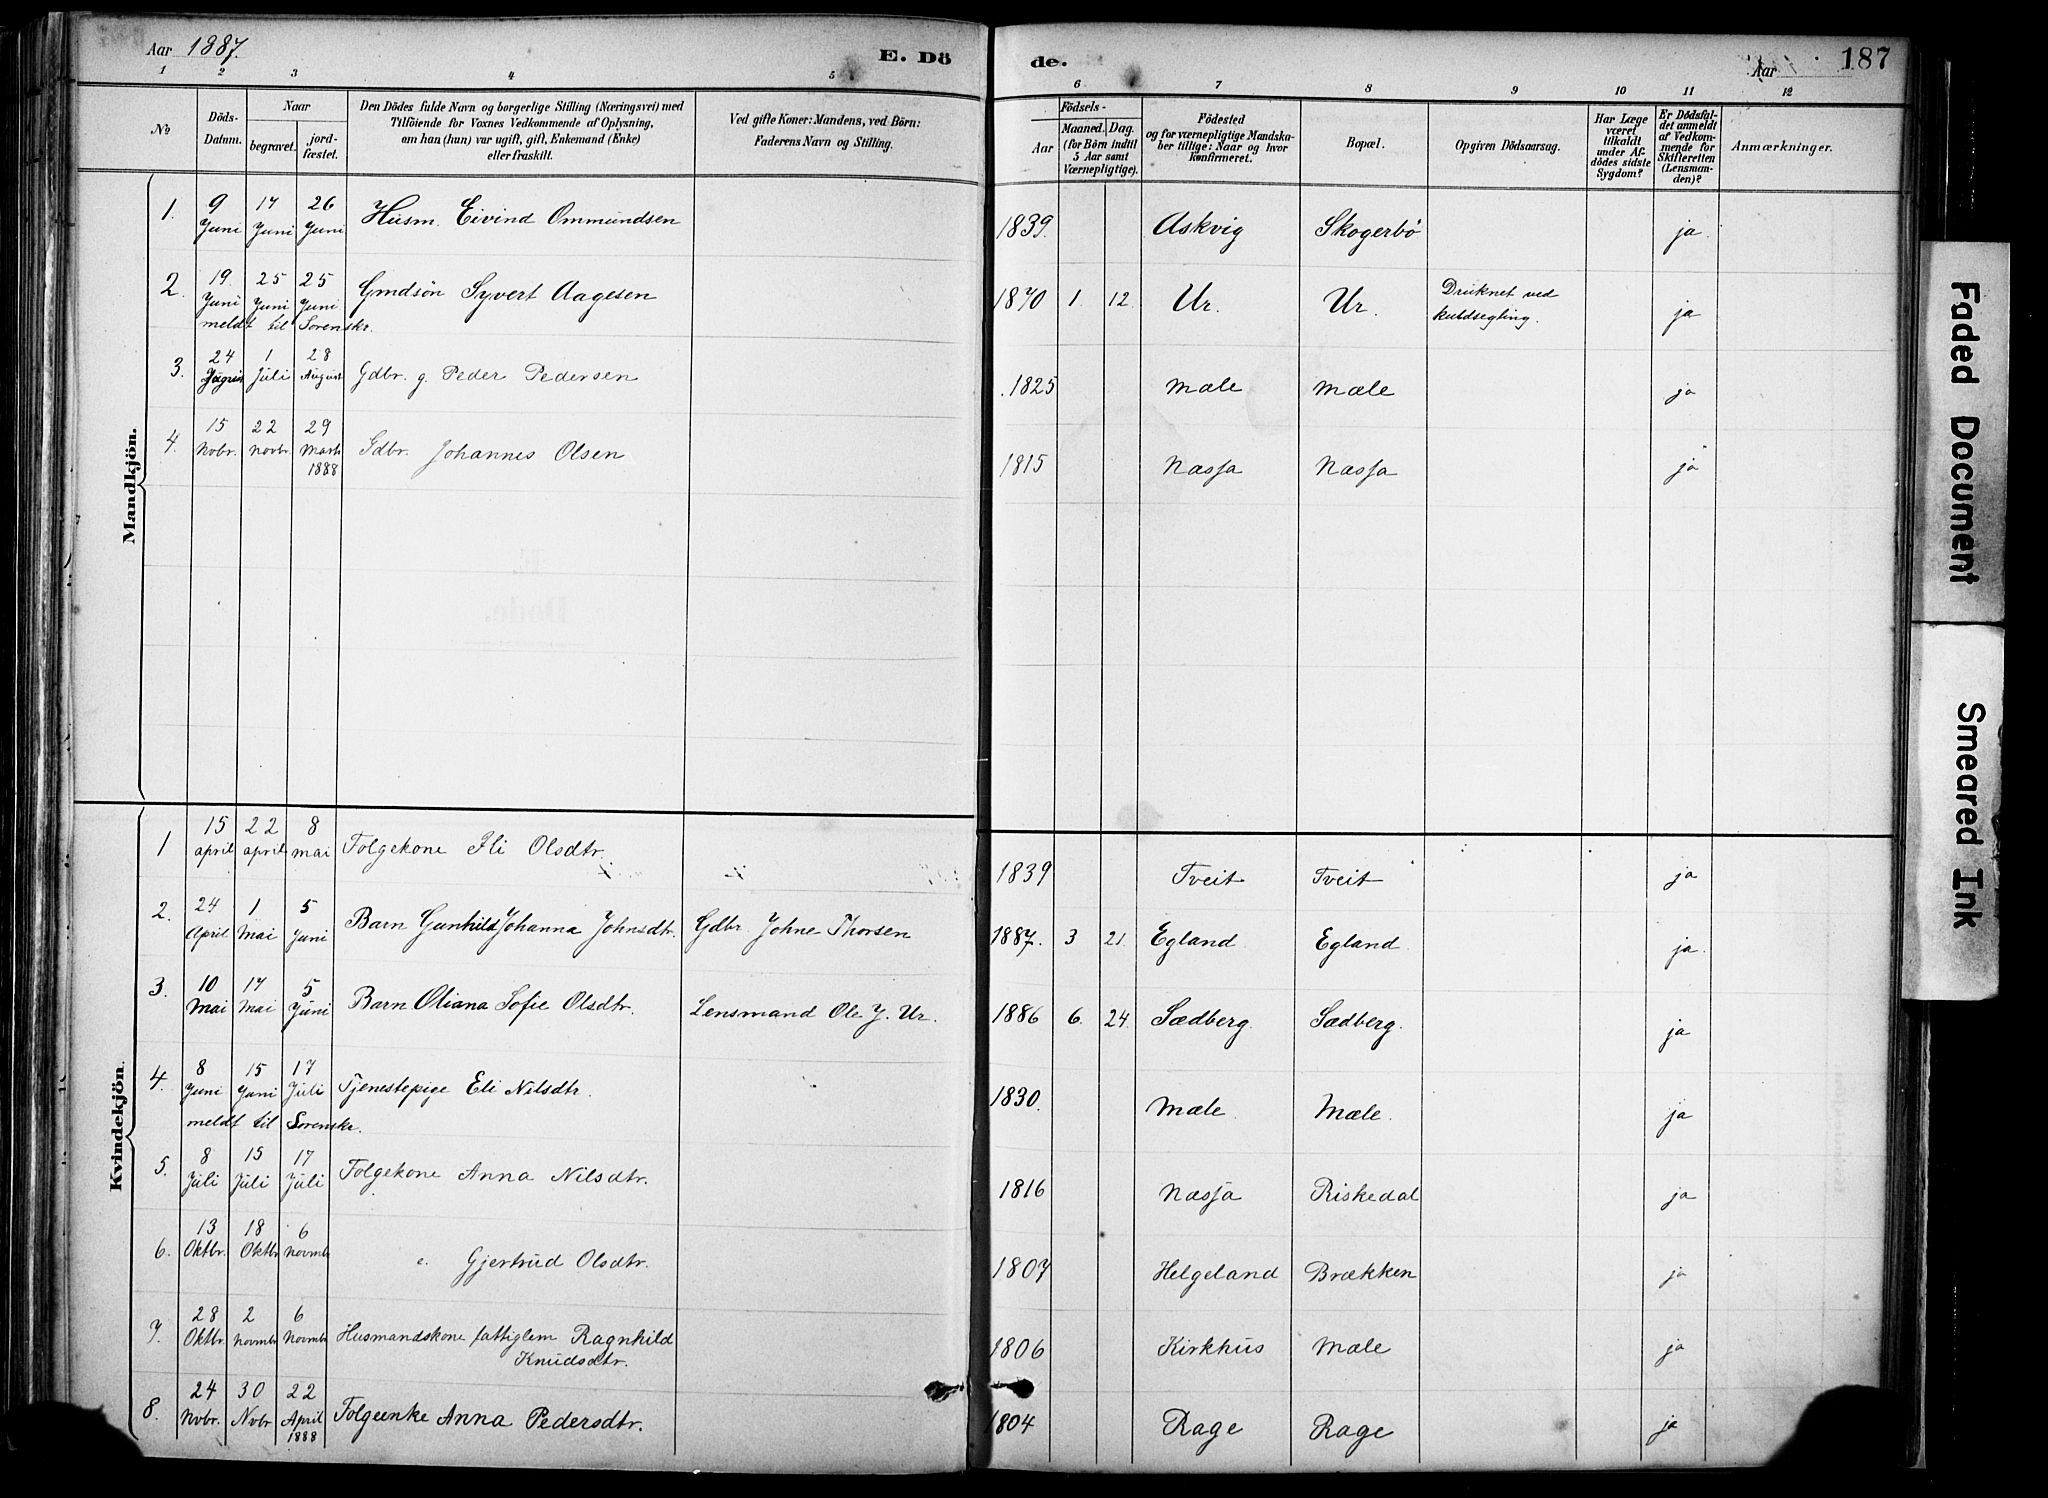 Aar 1887.
E. Dö
de.
Aar
187
1 2 3 4 5 6 7 8 9 10 11 12
№
Döds-
Datum.
Naar
begravet.
jord-
fæstet.
Den Dödes fulde Navn og borgerlige Stilling (Næringsvei) med
Tilföiende for Voxnes Vedkommende af Oplysning,
om han (hun) var ugift, gift, Enkemand (Enke)
eller fraskilt.
Ved gifte Koner: Mandens, ved Börn:
Faderens Navn og Stilling.
Födsels-
Aar
Maaned. Dag.
(for Börn indtil
5 Aar samt
Værnepligtige).
Födested
og for værnepligtige Mandska-
ber tillige: Naar og hvor
konfirmeret.
Bopæl.
Opgiven Dödsaarsag.
Har Læge
været
tilkaldt
under Af-
dödes sidste
Sygdom?
Er Dödsfal-
det anmeldt
af Vedkom-
mende for
Skifteretten
(Lensman-
den)?
Anmærkninger.
Mandkjön.
1. 9 Juni 17 Juni 26 Juni Husm. Eivind Ommundsen 1839. Askvig Skogerbö ja.
2. 19. Juni 25 Juni 25 Juni Gmdsön Syvert Aagesen 1870 1. 12. Ur. Ur. Druknet ved ja
meldt til Sorenskr. kuldsegling.
3. 24 1 Juli 28 August Gdbr. g. Peder Pedersen 1825 Mæle Mæle ja
4. 15 Nobr. 22 Novbr. 29 Marts Gdbr. Johannes Olsen 1815 Næsja Næsja ja
1888
E.
Döde.
Kvindekjön.
1 15 april 22 april 8 mai Folgekone Ili Olsdtr. 1839 Tveit Tveit ja
2. 24 April 1 Mai 5 Juni Barn Gunhild Johanna Johnsdtr. Gdbr. Johne Thorsen 1887. 3 21. Egland Egland ja.
3. 10 Mai 17 Mai 5 Juni Barn Oliana Sofie Olsdtr. Lensmand Ole J. Ur. 1886 6. 24. Sædberg. Sædberg. ja
4. 8 Juni 15 Juni 17 Juli Tjenestepige Eli Nilsdtr. 1830. Mæle. Mæle. ja
meldt til Sorenskr.
5. 8 Juli 15 Juli 17 Juli Folgekone Anna Nilsdtr. 1816 Næsja Riskedal ja
6. 13 Oktbr. 18 Oktbr 6 Novmbr e. Gjertrud Olsdtr. 1807 Helgeland Brækken ja
7. 28 Oktbr. 2 Novmbr 6 Novmbr Husmandskone fattiglem Ragnhild 1806 Kirkhus Mæle ja
Knudsdtr.
8. 24 Nobr. 30 Nobr 22 April Folgeenke Anna Pedersdtr. 1804 Rage Rage ja
1888
Faded Document
Smeared Ink